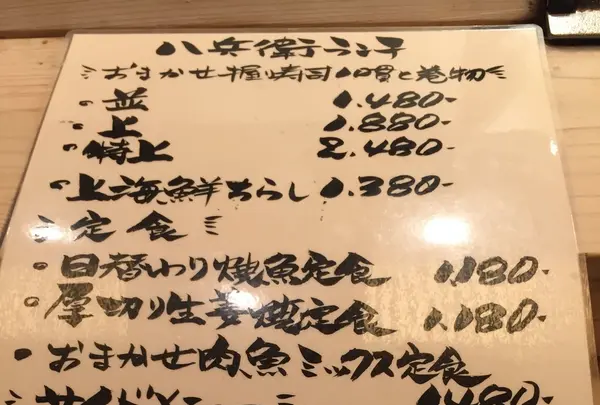 八兵衛ランチ
おまかせ握り寿司10貫と巻物
・並 1.480-
・上 1.880-
・特上 2.480-
・上海鮮ちらし 1.380-
定食
・日替わり焼魚定食 1,180-
・厚切り生姜焼定食 1,180-
・おまかせ肉魚ミックス定食
サイドメニュー 1,480-